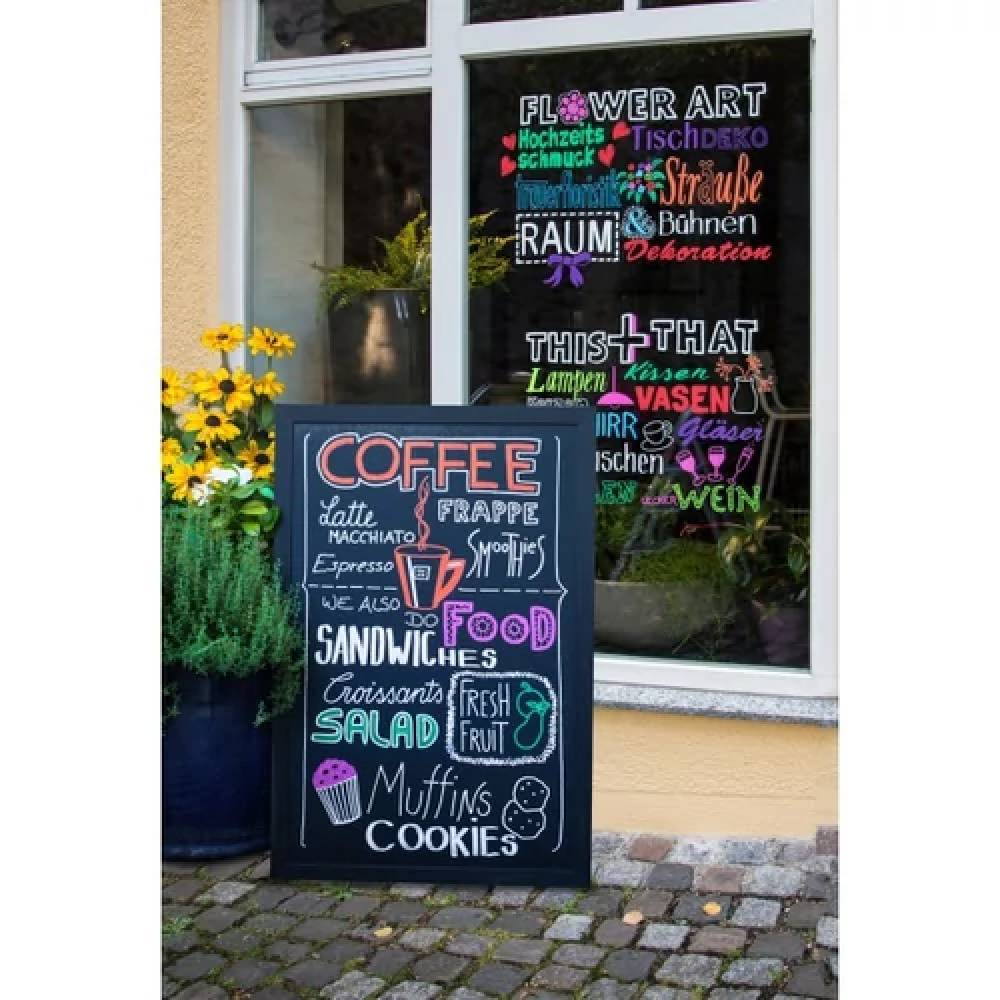 FLOWER ART
Hochzeits
schmuck
TischDEKO
Trauerfloristik
Sträuße
RAUM
& Bühnen
Dekoration
THIS + THAT
Lampen
Kissen
Kerzen
VASEN
Gläser
WEIN
COFFEE
Latte
MACCHIATO
FRAPPE
Espresso
SMOOTHIES
WE ALSO
DO FOOD
SANDWICHES
Croissants
SALAD
FRESH
FRUIT
Muffins
COOKIES